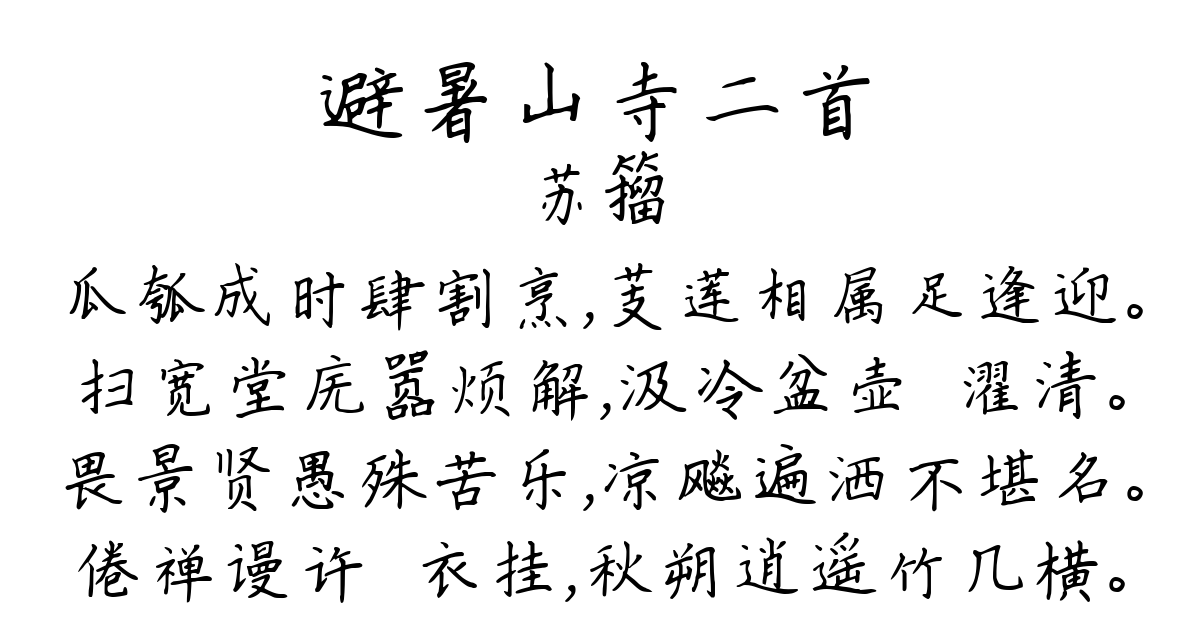 避暑山寺二首
苏籀
瓜瓠成时肆割烹,芰莲相属足逢迎。
扫宽堂庑嚣烦解,汲冷盆壶 濯清。
畏景贤愚殊苦乐,凉飚遍洒不堪名。
倦禅谩许 衣挂,秋朔逍遥竹几横。